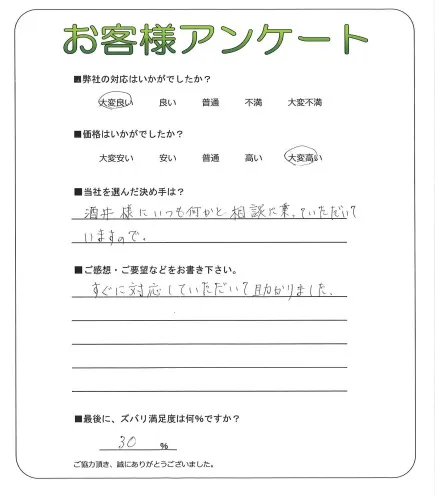 お客様アンケート
■弊社の対応はいかがでしたか？
大変良い 良い 普通 不満 大変不満
■価格はいかがでしたか？
大変安い 安い 普通 高い 大変高い
■当社を選んだ決め手は？
酒井様にいつも何かと相談に乗っていただいて
いますので。
■ご感想・ご要望などをお書き下さい。
すぐに対応していただいて助かりました。
■最後に、ズバリ満足度は何%ですか？
30 %
ご協力頂き、誠にありがとうございました。